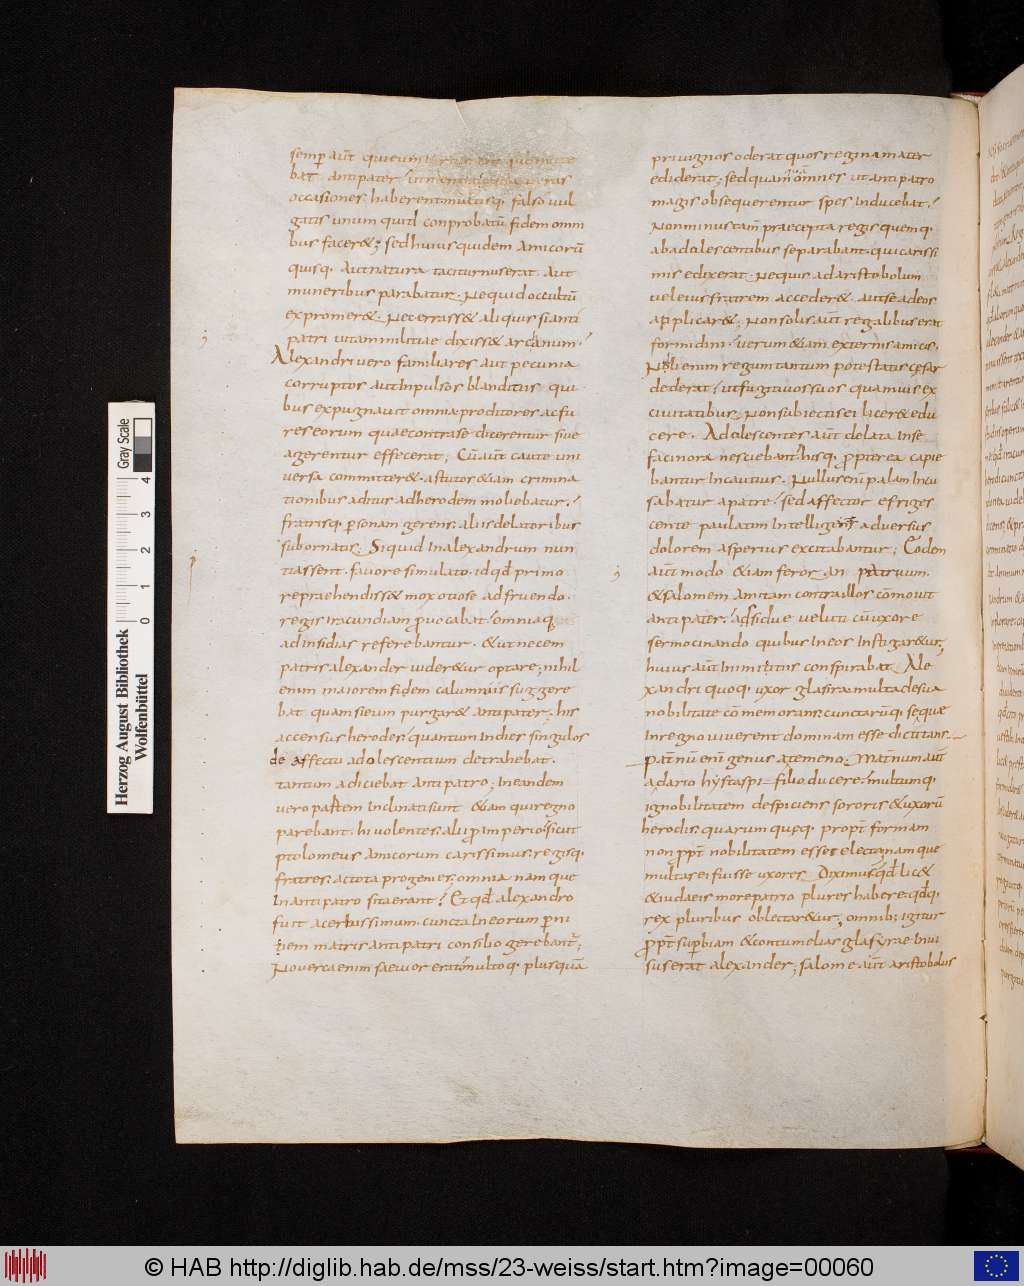 semp aut̄ quieum
bat antipater
occasiones haberent multisq; falso vul
gatis unum quid conprobatū fidem omni
bus facer&; sed huius quidem amicorū
quisq; aut natura taciturnus erat aut
muneribus parabatur. Nequid occultū
expromer&. Nec errass& aliquis si anti
patri vitam militiae dixiss& arcanum.
Alexandri vero familiares aut pecunia
corruptos aut inpulsos blanditiis qui
bus expugnavit omnia proditores ac fu
res eorum quae contra se dicerentur sive
agerentur effecerat; Cū aut̄ caute uni
versa committer& astutos &iam crimina
tionibus aditus ad herodem moliebatur.
fratrisq; psonam gerens. aliis delatoribus
subornatis. Siquid in alexandrum nun
tiassent. favore simulato. id qd̄ primo
repraehendiss& mox otiose adfruendo.
regis iracundiam pvocabat. omniaq;
ad insidias referebantur. &ut necem
patris alexander vider&ur optare; nihil
enim maiorem fidem calumniis suggere
bat quam si eum purgar& antipater; his
accensus herodes. quantum indies singulos
de affectu adolescentium detrahebat.
tantum adiciebat antipatro; In eandem
vero partem inclinati sunt &iam qui regno
parebant. hi volentes. alii pram perio. sicut
ptolomeus amicorum carissimus. regisq;
fratres. ac tota progenies; omnia namque
In antipatro sita erant. Et qd̄ alexandro
fuit acerbissimum. cuncta in eorum pni
tiem matris antipatri consilio gerebant̄;
Noverca enim saevior erat. multoq; plusquā
privignos oderat quos regina mater
ediderat. sed quam omnes ut antipatro
magis obsequerentur spes inducebat.
Non minus tam̄ praecepta regis quemq;
ab adolescentibus separabant. qui carissi
mis edixerat. Nequis ad aristobolum
vel eius fratrem acceder&. aut se ad eos
applicar&. Non solis aut̄ regalibus erat
formidini. verum &iam externis amicis.
Nulli enim regum tantum potestatis cesar
dederat. ut fugitivos suos quamvis ex
civitatibus. Non subiectis ei licer& edu
cere. Adolescentes aut̄ delata in se
facinora nesciebant. hisq; ppterea capie
bantur incautius. Nullus enī palam incu
sabatur a patre. sed affectior efriges
cente paulatim intellegens adversus
dolorem asperius excitabantur; Eodem
aut̄ modo &iam feror an patruum.
&salomem amitam contra illos cōmovit
antipater. adsidue veluti cū uxore
sermocinando quibus in eos instigar&ur;
huius aut̄ inimicitiis conspirabat Ale
xandri quoq; uxor glasira. multa de sua
nobilitate cōmemorans. cunctarūq; seque
In regno viverent dominam esse dictitans.
Pat̄nū enī genus a temeno. Mat̄num aut̄
a dario hystaspi filio ducere. multumq;
ignobilitatem despiciens sororis &uxorū
herodis. quarum queq; propt̄ formam
non ppt̄ nobilitatem esset electa. nam que
multas ei fuisse uxores Diximus. qd̄ lic&
&iudaeis more patrio plures habere. qd̄q;
rex pluribus oblectar&ur; omnib; igitur
ppt̄ supbiam &contumelias glasirae invi
sus erat alexander; salome aut̄ aristobolus
Herzog August Bibliothek
Wolfenbüttel
Gray Scale
0 1 2 3 4
© HAB http://diglib.hab.de/mss/23-weiss/start.htm?image=00060